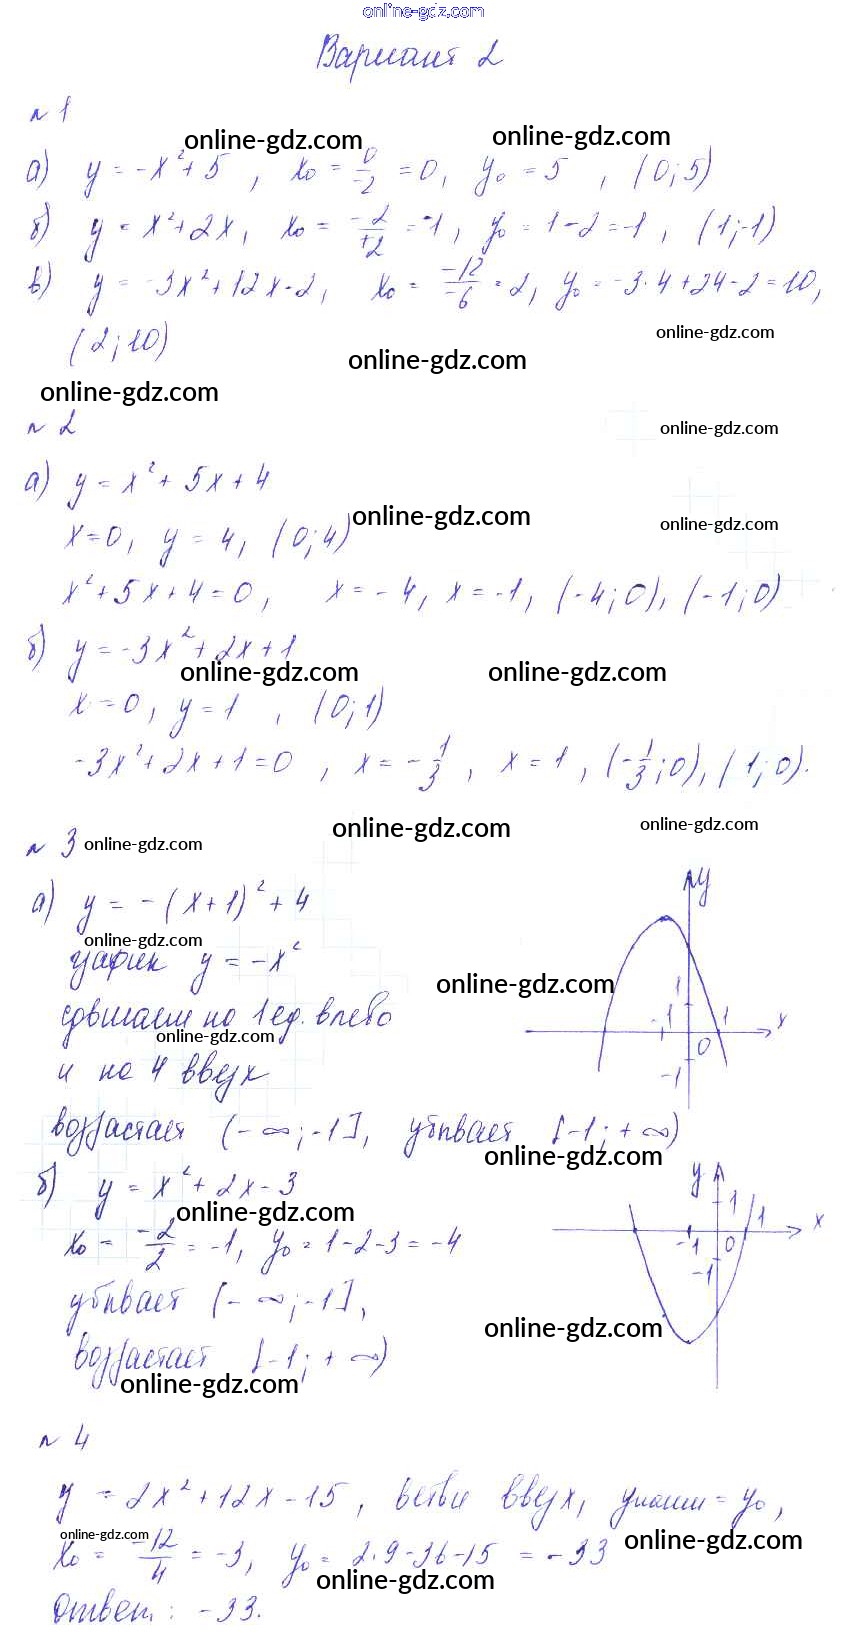 online-gdz.com
Вариант 2
n 1
online-gdz.com online-gdz.com
а) y = -x² + 5 , x₀ = 0/-2 = 0, y₀ = 5 , (0; 5)
б) y = x² + 2x, x₀ = -2/+2 = -1, y₀ = 1-2 = -1, (1;-1)
в) y = -3x² + 12x - 2, x₀ = -12/-6 = 2, y₀ = -3·4+24-2=10,
(2; 10)
online-gdz.com
online-gdz.com
online-gdz.com
n 2
online-gdz.com
а) y = x² + 5x + 4
x=0, y = 4, (0; 4)
online-gdz.com
online-gdz.com
x² + 5x + 4 = 0, x = -4, x = -1, (-4; 0), (-1; 0)
б) y = -3x² + 2x + 1
online-gdz.com online-gdz.com
x = 0, y = 1 , (0; 1)
-3x² + 2x + 1 = 0 , x = -1/3 , x = 1, (-1/3; 0), (1; 0).
n 3
online-gdz.com
online-gdz.com
online-gdz.com
а) y = -(x+1)² + 4
online-gdz.com
график y = -x²
online-gdz.com
сдвигаем на 1 ед. влево
online-gdz.com
и на 4 вверх
y
1
-1 1 x
0
-1
возрастает (-∞; -1], убывает [-1; +∞)
online-gdz.com
б) y = x² + 2x - 3
online-gdz.com
x₀ = -2/2 = -1, y₀ = 1-2-3 = -4
убывает (-∞; -1],
возрастает [-1; +∞)
online-gdz.com
online-gdz.com
y
1 1 x
-1 0
-1
n 4
y = 2x² + 12x - 15, ветви вверх, yнаим = y₀,
online-gdz.com
x₀ = -12/4 = -3, y₀ = 2·9-36-15 = -33
online-gdz.com
online-gdz.com
Ответ: -33.